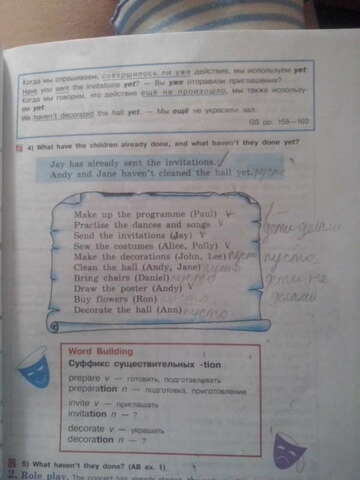 Когда мы спрашиваем, совершилось ли уже действие, мы используем yet.
Have you sent the invitations yet? — Вы уже отправили приглашения?
Когда мы говорим, что действие ещё не произошло, мы также использу-
ем yet.
We haven't decorated the hall yet. — Мы ещё не украсили зал.
GS pp. 158—160
4) What have the children already done, and what haven't they done yet?
Jay has already sent the invitations. √
Andy and Jane haven't cleaned the hall yet. пусто
Make up the programme (Paul) √
Practise the dances and songs √
Send the invitations (Jay) √
Sew the costumes (Alice, Polly) √
Make the decorations (John, Lee) пусто
Clean the hall (Andy, Jane) пусто
Bring chairs (Daniel) пусто
Draw the poster (Andy) √
Buy flowers (Ron) пусто
Decorate the hall (Ann) пусто
пусто
Word Building
Суффикс существительных -tion
prepare v — готовить, подготавливать
preparation n — подготовка, приготовление
invite v — приглашать
invitation n — ?
decorate v — украшать
decoration n — ?
5) What haven't they done? (AB ex. 1)
2. Role play.